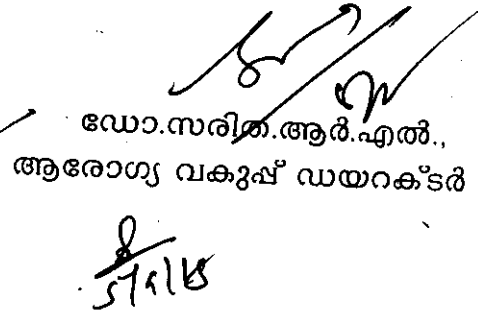 ഡോ.സരിത.ആർ.എൽ.,
ആരോഗ്യ വകുപ്പ് ഡയറക്ടർ